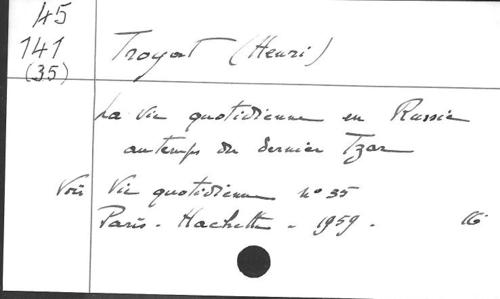 45
141
(35)
Troyat (Henri)
La Vie quotidienne en Russie
au temps du dernier Tzar
Voir Vie quotidienne n° 35
Paris - Hachette - 1959 -